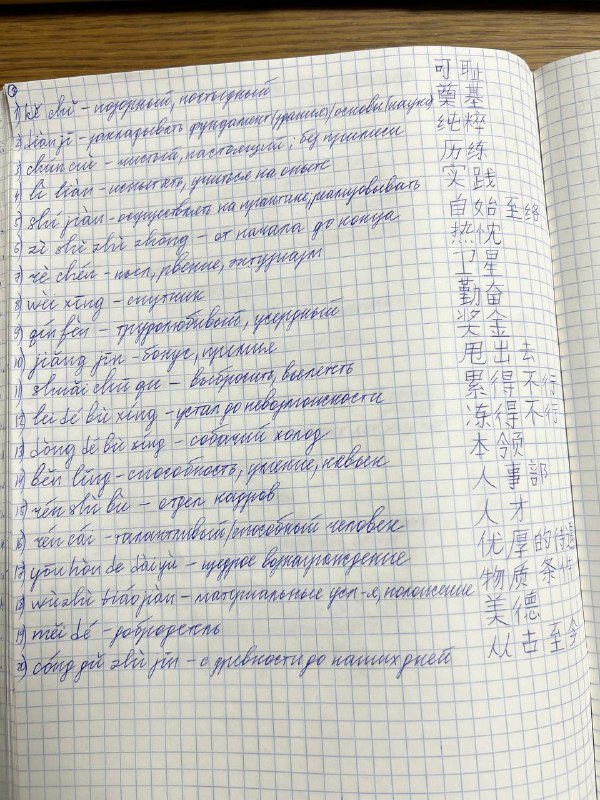 1) kě chǐ – позорный, постыдный 可耻
2) diàn jī – закладывать фундамент (здания) / основы (науки) 奠基
3) chún cuì – чистый, настоящий, без примеси 纯粹
4) lì liàn – испытать, учиться на опыте 历练
5) shí jiàn – осуществлять на практике; реализовывать 实践
6) zì shǐ zhì zhōng – от начала до конца 自始至终
7) rè chén – пыл, рвение, энтузиазм 热忱
8) wèi xīng – спутник 卫星
9) qín fèn – трудолюбивый, усердный 勤奋
10) jiǎng jīn – бонус, премия 奖金
11) shuǎi chū qu – выбросить, выплеснуть 甩出去
12) lèi dé bù xíng – устал до невозможности 累得不行
13) dòng dé bù xíng – собачий холод 冻得不行
14) běn lǐng – способность, умение, навык 本领
15) rén shì bù – отдел кадров 人事部
16) rén cái – талантливый/способный человек 人才
17) yōu hòu de dài yù – щедрое вознаграждение 优厚的待遇
18) wù zhì tiáo jiàn – материальные усл-я, положение 物质条件
19) měi dé – добродетель 美德
20) cóng gǔ zhì jīn – с древности до наших дней 从古至今